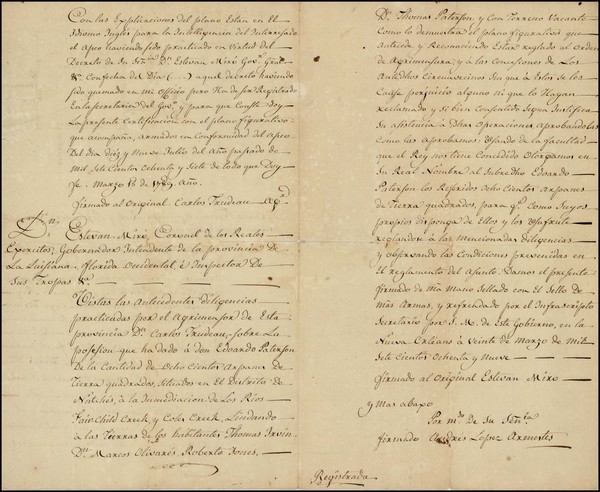 Con las Explicaciones del plano Estan en El
Idioma Ingles para la Inteligencia del Interesado
el Apeo haviendo sido practicado en Virtud del
Decreto de Su Sen.ria D.n Estevan Miró Gov.r Gral
&.a Con fecha del Dia (....) aquel decreto haviendo
sido quemado en mi Officio pero Ha de ser Registrado
En la Secretaria del Gov.o y para que Conste Doy
La presente Certificacion con el plano figurativo
que acompaña, armados en Conformidad del Apeo
Del dia diez y Nueve Julio del Año pasado de
Mil Sete Cientos Ochenta y Siete de todo que Doy
Fe. Marzo 16 de 1789. Año.
firmado al Original Carlos Trudeau
D.n
Estevan Miró, Coronel de los Reales
Exercitos, Governador Intendente de la provincia De
La Luisiana, florida Occidental, è Inspector De
Sus Tropas &.a
Vistas las Antecedentes diligencias
practicadas por el Agrimensor de Esta
provincia D.n Carlos Trudeau, Sobre La
posesion que ha dado á don Edoardo Paterson
De la Cantidad de Ocho Cientos Arpans de
Tierra quadrados, Situados en El Distrito de
Natches, à la Inmediacion de Los Rios
Fair Child Creek y Coles Creek, Lindando
à las Tierras de los habitantes Thomas Irvin
D.n Marcos Olivares Roberto Jones,
D.n Thomas Paterson, y Con Terreno Vacante
Como lo demuestra el plano figurativo que
antecede y Reconociendo Estar reglado al Orden
de Agrimensura; y à las Concesiones de Los
Antedhos Circunvecinos Sin que à Estos Se les
Cause perjuicio alguno ni que lo Hayan
reclamado y si bien Consentido Segun Justifica
Su asistencia à Dhas Operaciones Aprobandolas
Como las Aprobamos: Usando de la facultad
que el Rey nos tiene Concedido Otorgamos en
Su Real Nombre al Subredho Eduardo
Paterson los Referidos Ocho Cientos Arpanes
de Tierra quadrados, para q.e Como Suyos
propios disponga de Ellos y los Usufrute
reglandose à las Mencionadas diligencias
y observando las Condiciones prevenidas en
El Reglamento del Asunto Damos el presente
firmado de Mia Mano Sellado con El Sello de
Mis Armas, y refrendado por el Infrascripto
Secretario por S. M. de Este Govierno, en la
Nueva Orleans à Veinte de Marzo de Mil
Sete Cientos Ochenta y Nueve
firmado al Original Estevan Miro
y mas abaxo
Por m.do De Su Sen.ria
firmado Andrés Lopez Armesto
Registrada